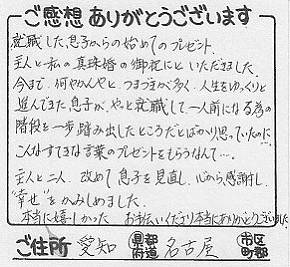 ご感想ありがとうございます
就職した息子からの始めてのプレゼント。
主人と私の真珠婚の御祝にといただきました。
今まで、何やかんやと、つまづきが多く、人生をゆっくりと
進んできた息子が、やっと就職して一人前になる為の
階段を一歩踏み出したところだとばかり思っていたのに…
こんなすてきな言葉のプレゼントをもらうなんて…。
主人と二人、改めて息子を見直し、心から感謝し、
"幸せ"をかみしめました。
本当に嬉しかった お手伝いくださり本当にありがとうございました
ご住所 愛知 都道府県 名古屋 市区町郡